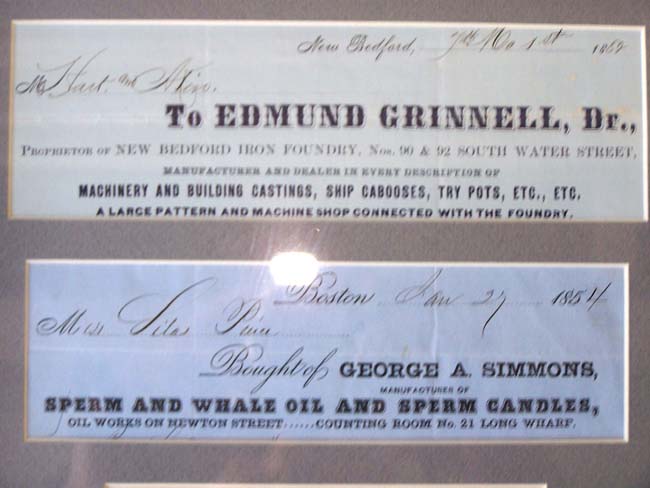 New Bedford, 7th Mo 1st 1862
Hart and
To EDMUND GRINNELL, Dr.,
PROPRIETOR OF NEW BEDFORD IRON FOUNDRY, Nos. 90 & 92 SOUTH WATER STREET,
MANUFACTURER AND DEALER IN EVERY DESCRIPTION OF
MACHINERY AND BUILDING CASTINGS, SHIP CABOOSES, TRY POTS, ETC., ETC.
A LARGE PATTERN AND MACHINE SHOP CONNECTED WITH THE FOUNDRY.
Boston Jan 27 1854
Silas
Bought of GEORGE A. SIMMONS,
MANUFACTURER OF
SPERM AND WHALE OIL AND SPERM CANDLES,
OIL WORKS ON NEWTON STREET......COUNTING ROOM No. 21 LONG WHARF.